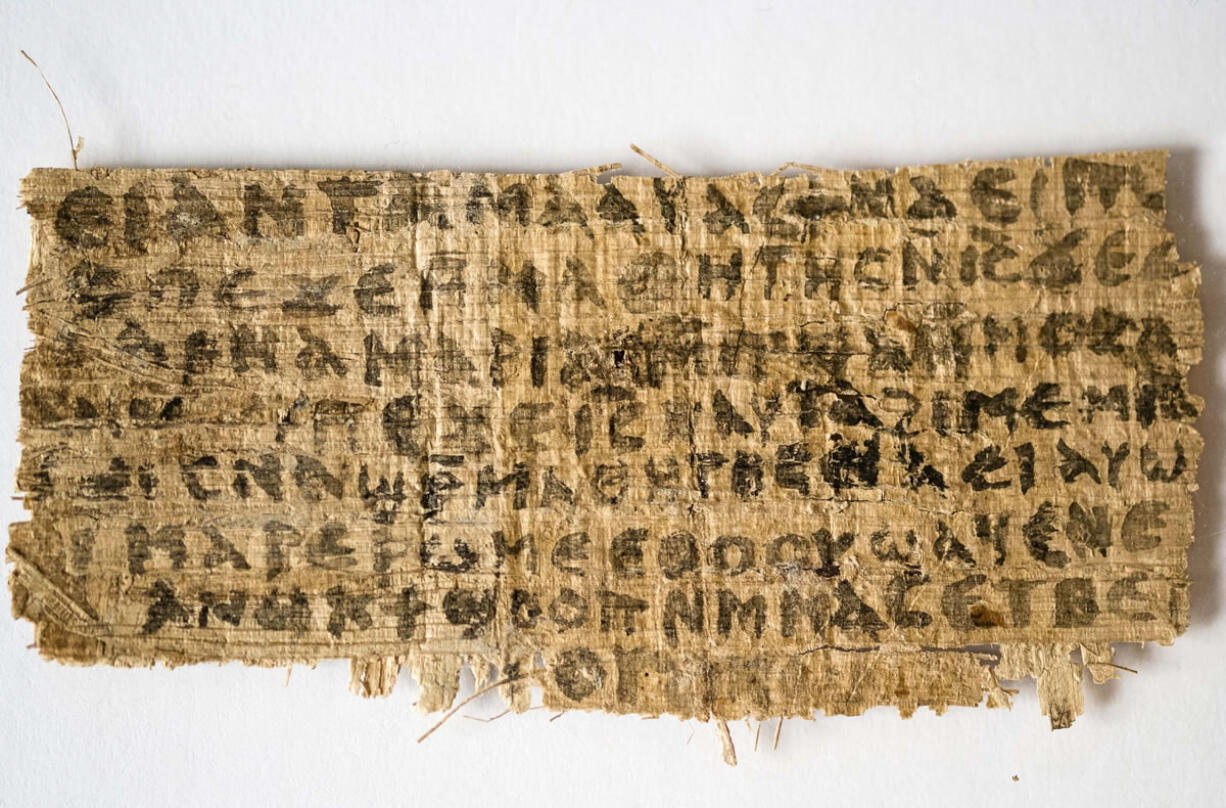 ⲉⲓ ⲁⲛ ⲧⲁⲙⲁⲁⲩ ⲁⲥϯ ⲛⲁⲉⲓ ⲡ
ⲡⲉϫⲉ ⲙⲙⲁⲑⲏⲧⲏⲥ ⲛⲓ̅ⲥ̅ ϫⲉ
ⲁⲣⲛⲁ ⲙⲁⲣⲓⲁⲙ ⲙⲡϣⲁ ⲙⲙⲟⲥ ⲁ
ⲡⲉϫⲉ ⲓ̅ⲥ̅ ⲛⲁⲩ ⲧⲁϩⲓⲙⲉ ⲙⲛ
ⲥⲛⲁϣⲣ̅ⲙⲁⲑⲏⲧⲏⲥ ⲛⲁⲉⲓ ⲁⲩⲱ
ⲓ ⲙⲁⲣⲉⲣⲱⲙⲉ ⲉⲑⲟⲟⲩ ϣⲁϥⲉ ⲛⲉ
ⲁⲛⲟⲕ ϯϣⲟⲟⲡ ⲛⲙⲙⲁⲥ ⲉⲧⲃⲉ